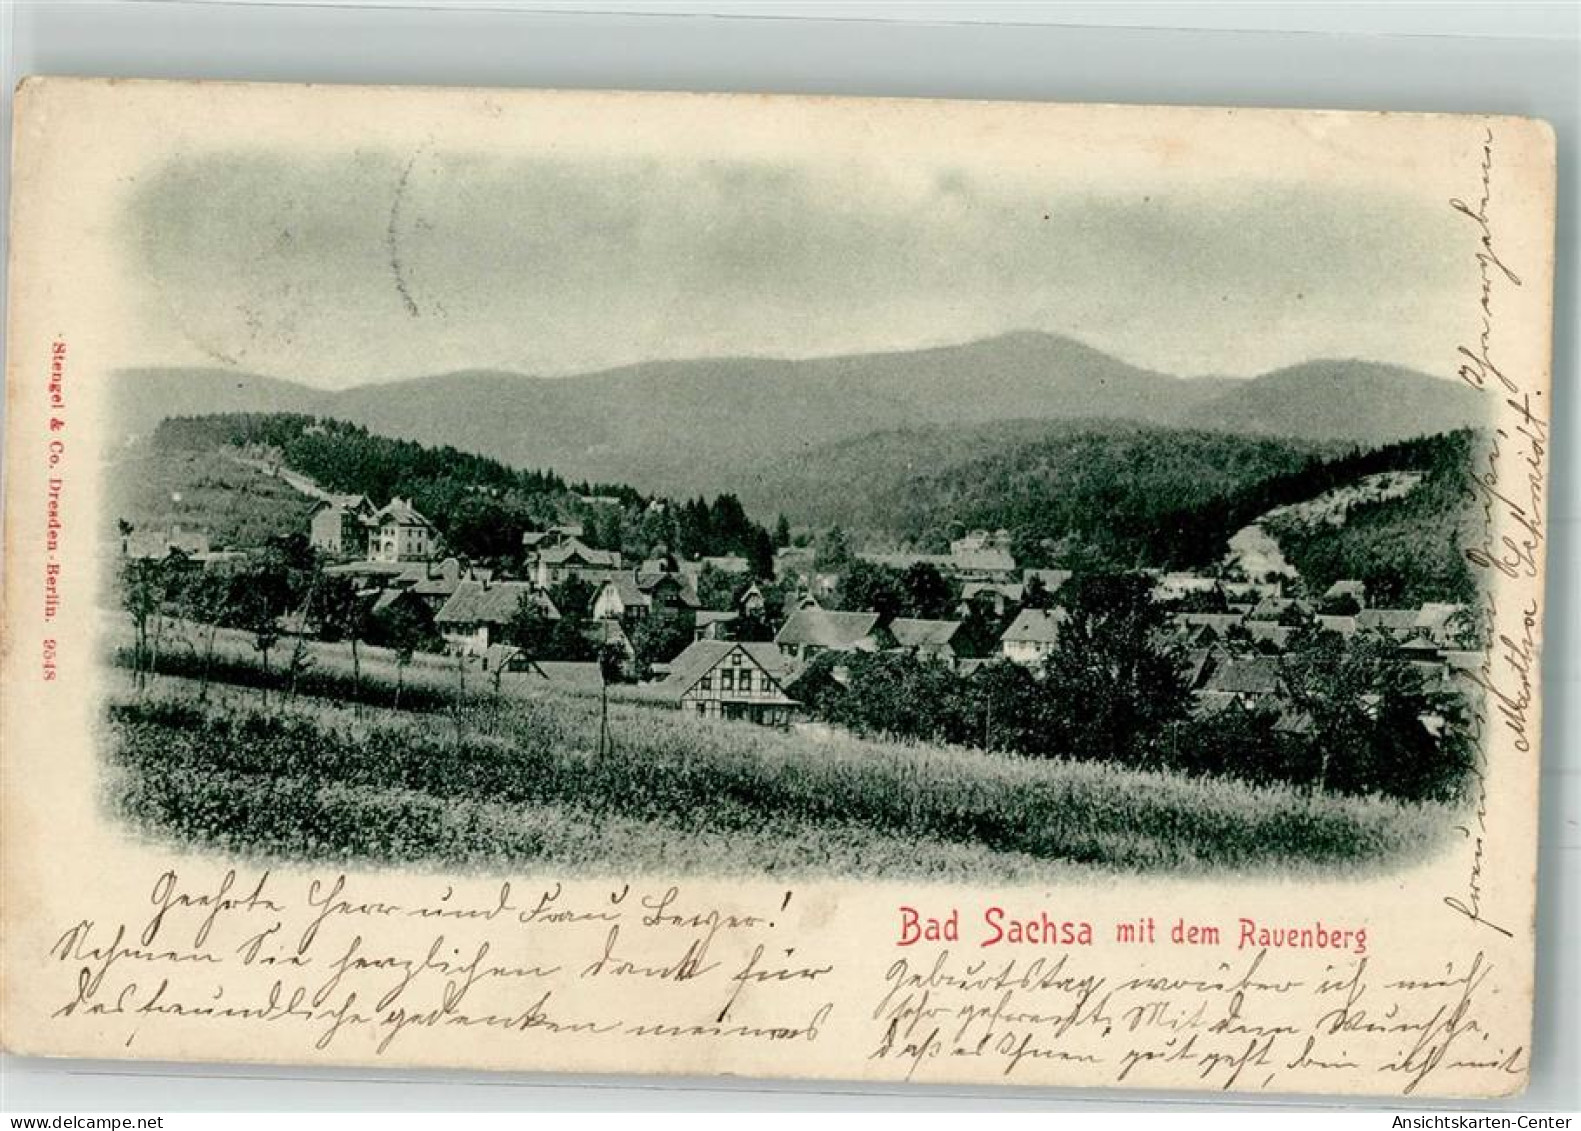 Stengel & Co. Dresden-Berlin. 9548
Bad Sachsa mit dem Ravenberg
Geehrte Herr und Frau Beyer!
Nehmen Sie herzlichen Dank für
das freundliche gedenken meines
Geburtstag, worüber ich mich
sehr gefreut. Mit dem Wunsche,
daß es Ihnen gut geht, bin ich mit
freundl. Gruß, Ihre ergebene
Martha Schmidt.
Ansichtskarten-Center